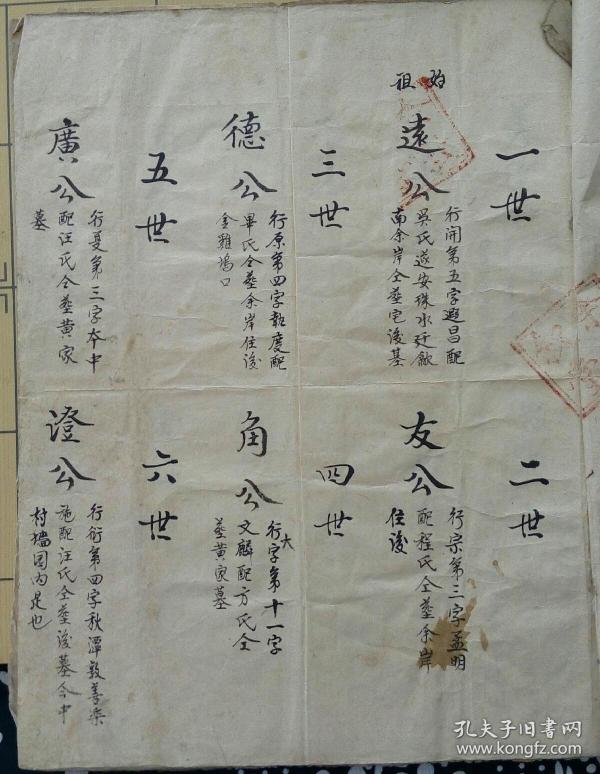 一世
始祖
遠公
行開第五字遐昌配
吳氏遂安珠水迁歙
南余岸仝塟宅後墓
二世
友公
行宗第三字孟明
配程氏仝塟余岸
住後
三世
德公
行原第四字執度配
畢氏仝塟余岸住後
金雞塢口
四世
角公
行大字第十一字
文麟配方氏仝
塟黄家墓
五世
廣公
行夏第三字本中
配汪氏仝塟黄家
墓
六世
澄公
行衍第四字秋潭敦善樂
施配汪氏仝塟後墓今中
村墻园内是也
孔夫子旧書网
www.kongfz.com